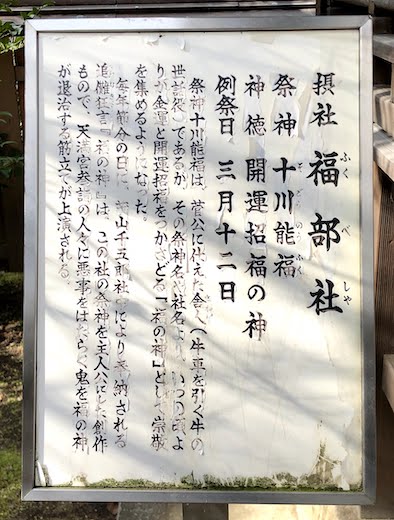 摂社 福部社
ふく べ しゃ
祭神 十川能福
のう ふく
神徳 開運招福の神
例祭日 三月十二日
祭神十川能福は、菅公に仕えた舎人(牛車を引く牛の
世話役)であるが、その祭神名や社名より、いつの頃よ
りか金運と開運招福をつかさどる『福の神』として崇敬
を集めるようになった。
毎年節分の日に、茂山千五郎社中により奉納される
追儺狂言『福の神』は、この社の祭神を主人公にした創作
もので、天満宮参詣の人々に悪事をはたらく鬼を福の神
が退治する筋立てが上演される。